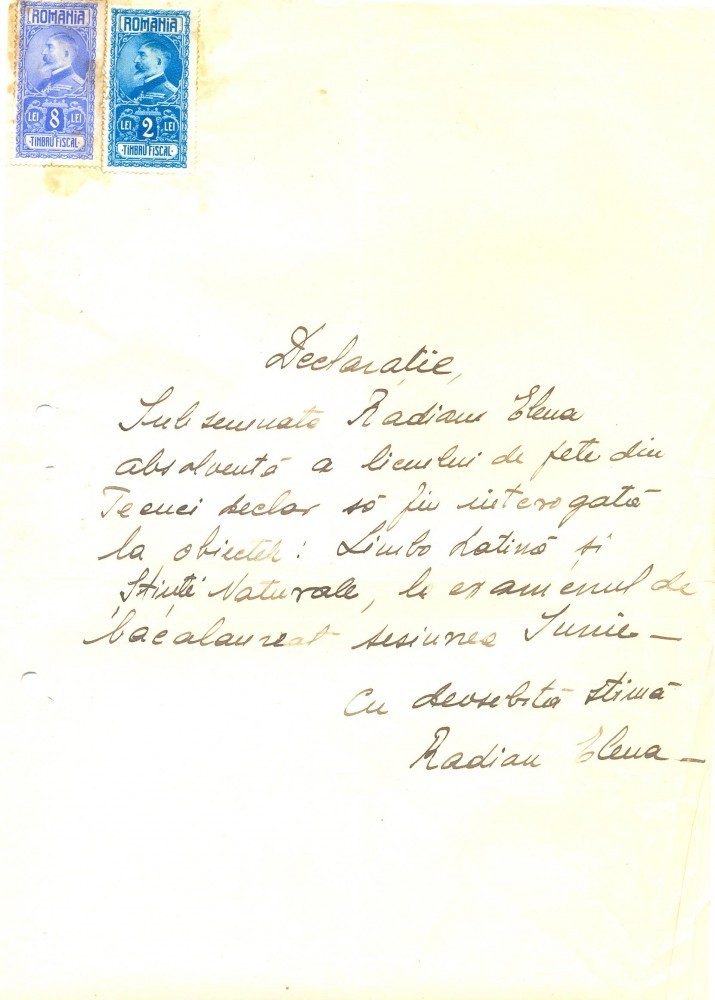 ROMANIA ROMANIA
LEI 8 LEI LEI 2 LEI
·TIMBRU FISCAL· ·TIMBRU FISCAL·
Declarație,
Subsemnata Radian Elena
absolventă a liceului de fete din
Tecuci declar să fiu interogată
la obiectele: Limba Latină și
Științi Naturale, la examenul de
bacalaureat sesiunea Iunie —
Cu deosebită stimă
Radian Elena —